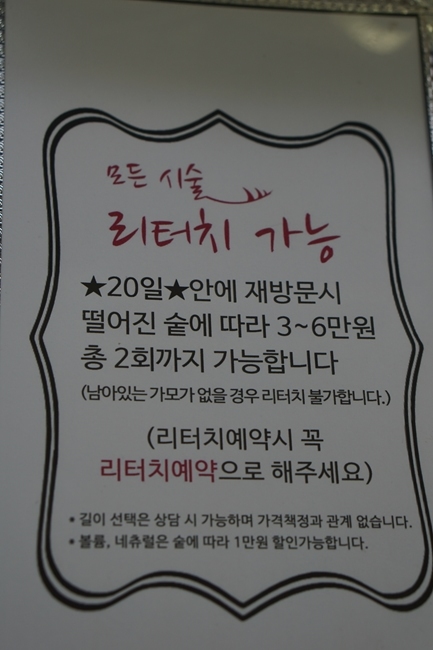 모든 시술
리터치 가능
★20일★안에 재방문시
떨어진 숱에 따라 3~6만원
총 2회까지 가능합니다
(남아있는 가모가 없을 경우 리터치 불가합니다.)
(리터치예약시 꼭
리터치예약으로 해주세요)
• 길이 선택은 상담 시 가능하며 가격책정과 관계 없습니다.
• 볼륨, 네츄럴은 숱에 따라 1만원 할인가능합니다.